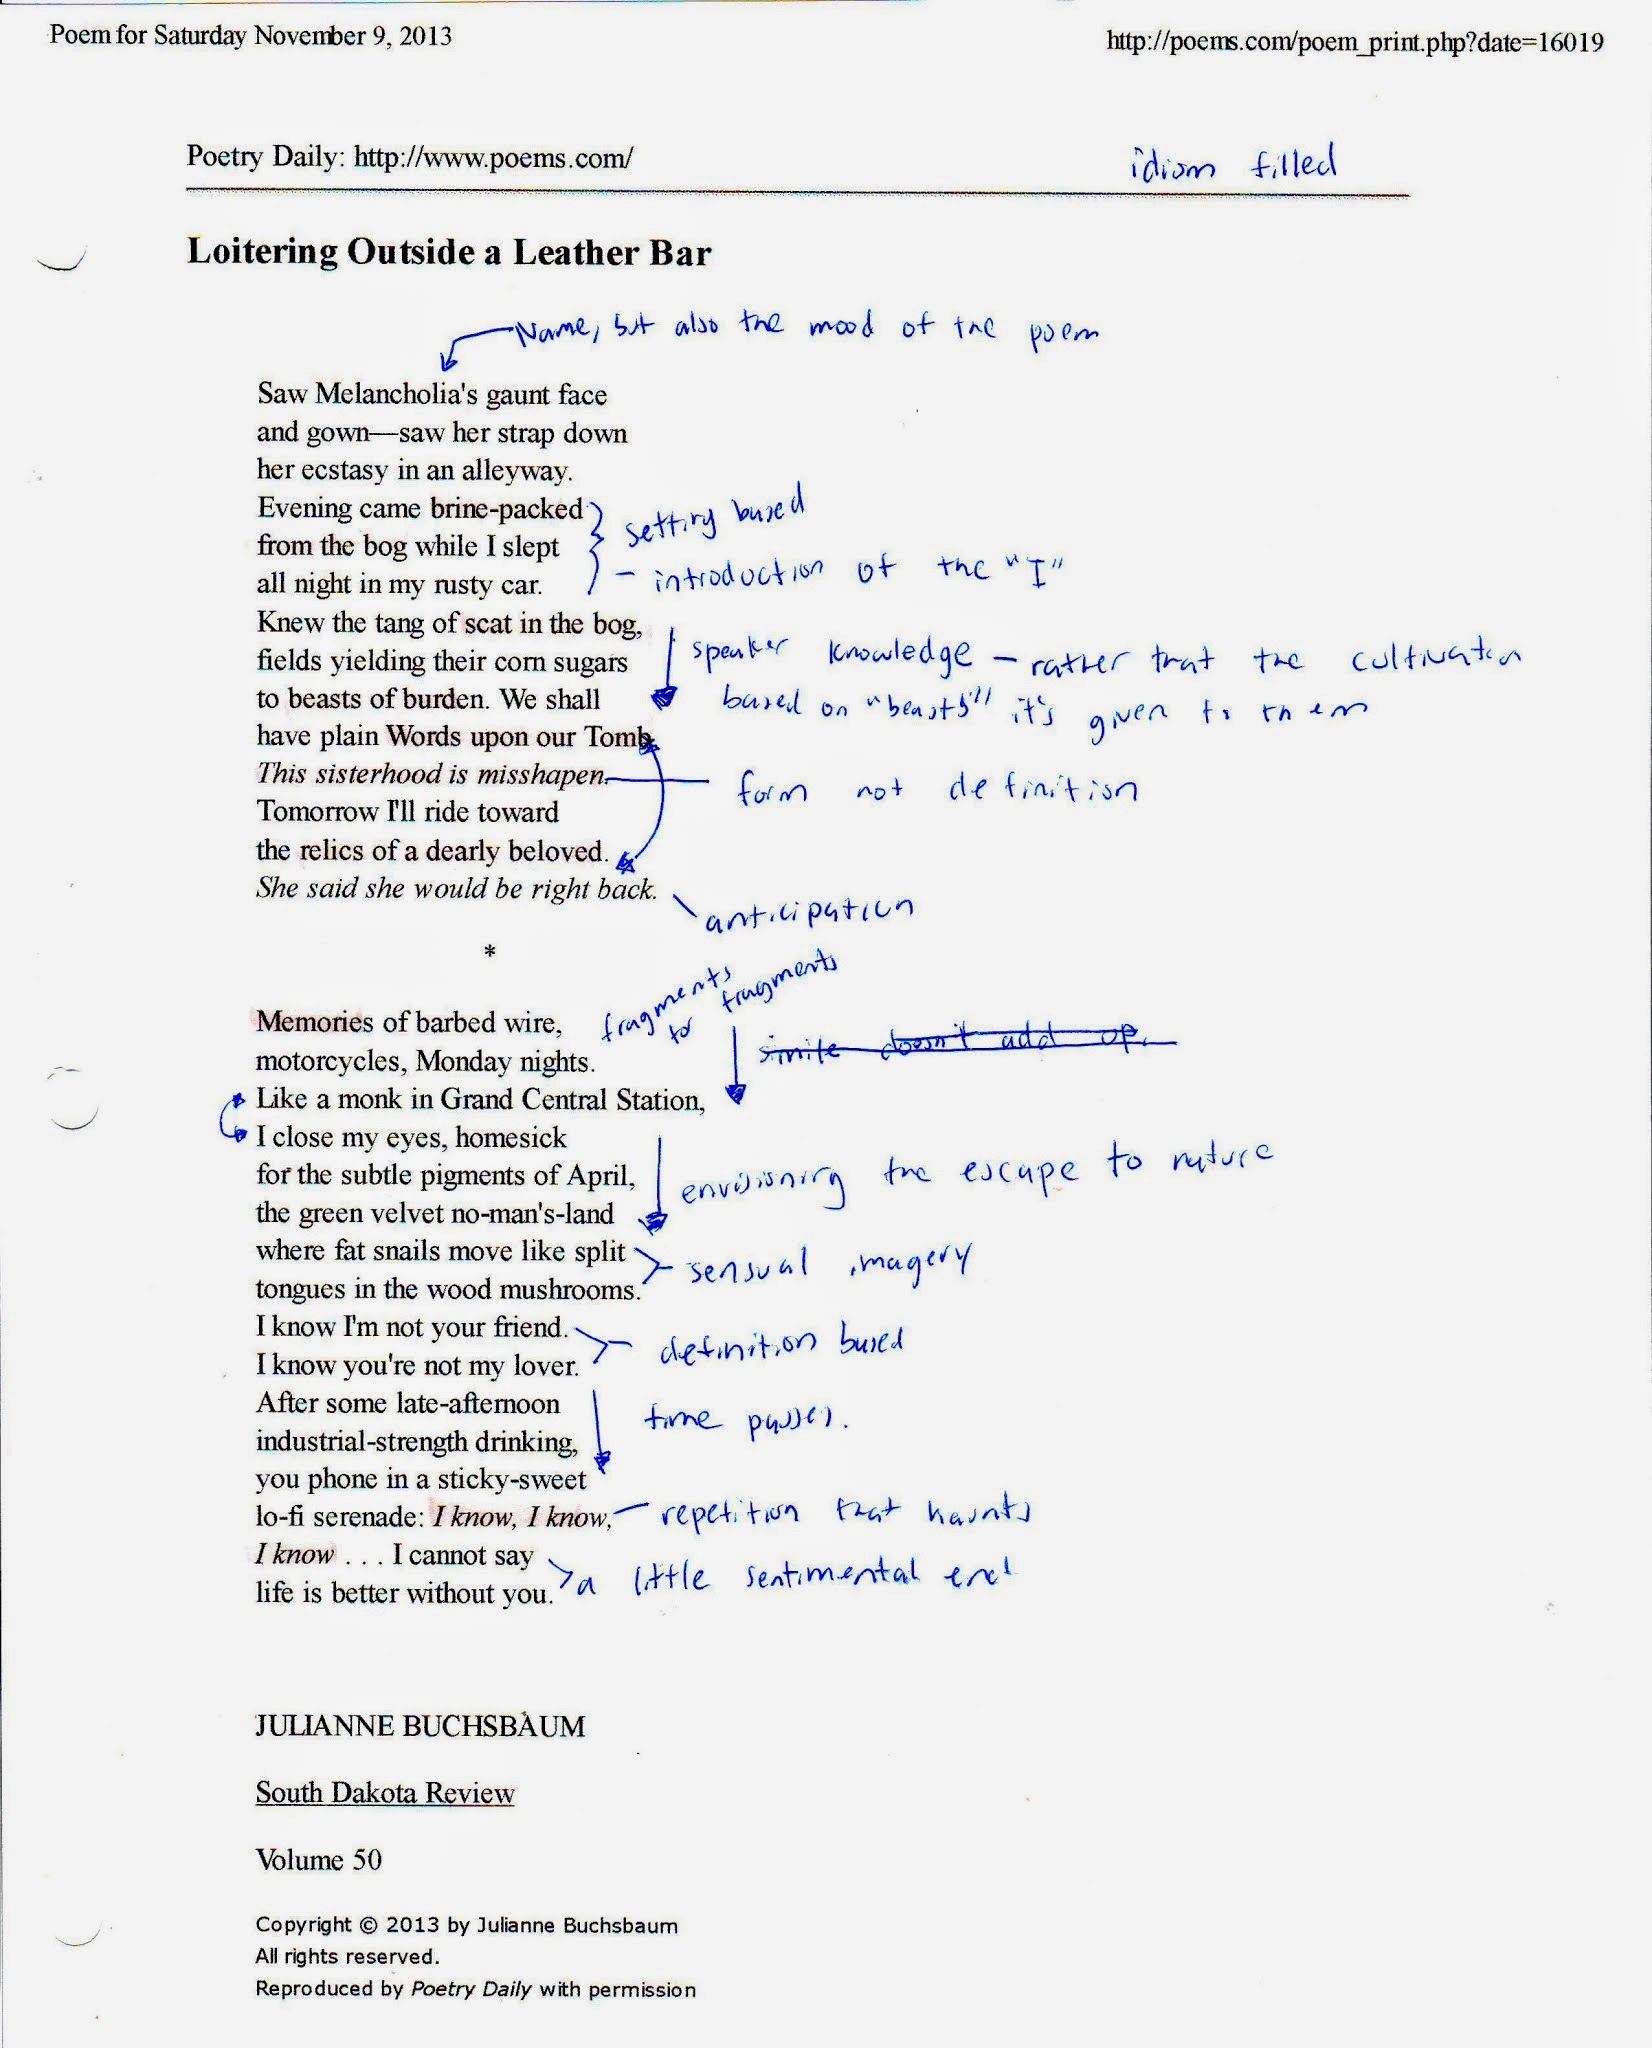 Poem for Saturday November 9, 2013
http://poems.com/poem_print.php?date=16019
Poetry Daily: http://www.poems.com/
idiom filled
Loitering Outside a Leather Bar
Name, but also the mood of the poem
Saw Melancholia's gaunt face
and gown—saw her strap down
her ecstasy in an alleyway.
Evening came brine-packed
setting based
from the bog while I slept
- introduction of the "I"
all night in my rusty car.
Knew the tang of scat in the bog,
speaker knowledge - rather that the cultivation
fields yielding their corn sugars
to beasts of burden. We shall
based on "beasts" it's given to them
have plain Words upon our Tomb.
This sisterhood is misshapen.
form not definition
Tomorrow I'll ride toward
the relics of a dearly beloved.
She said she would be right back.
anticipation
*
fragments to fragments
Memories of barbed wire,
simile doesn't add up.
motorcycles, Monday nights.
Like a monk in Grand Central Station,
I close my eyes, homesick
for the subtle pigments of April,
envisioning the escape to nature
the green velvet no-man's-land
where fat snails move like split
sensual imagery
tongues in the wood mushrooms.
I know I'm not your friend.
definition based
I know you're not my lover.
After some late-afternoon
time passes.
industrial-strength drinking,
you phone in a sticky-sweet
lo-fi serenade: I know, I know,
repetition that haunts
I know . . . I cannot say
a little sentimental end
life is better without you.
JULIANNE BUCHSBAUM
South Dakota Review
Volume 50
Copyright © 2013 by Julianne Buchsbaum
All rights reserved.
Reproduced by Poetry Daily with permission